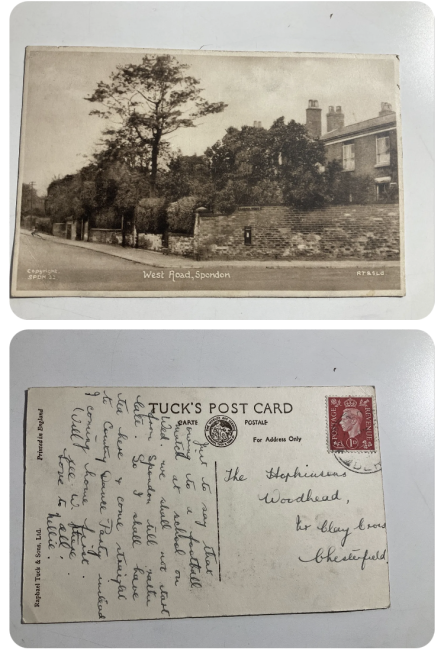 Copyright
SPDN 33
West Road, Spondon
R T & S L d
TUCK'S POST CARD
CARTE POSTALE
For Address Only
Printed in England
Raphael Tuck & Sons, Ltd.
POSTAGE REVENUE
1D
Just to say that
owing to a football
match at school on
Wed. we shall not start
from Spondon till rather
late. So I shall have
tea here & come straight
to Dance instead
of coming home first.
(Will See W. there.
Love to all,
Nellie.
The Hopkinsons
Woodhead,
Nr Clay Cross
Chesterfield